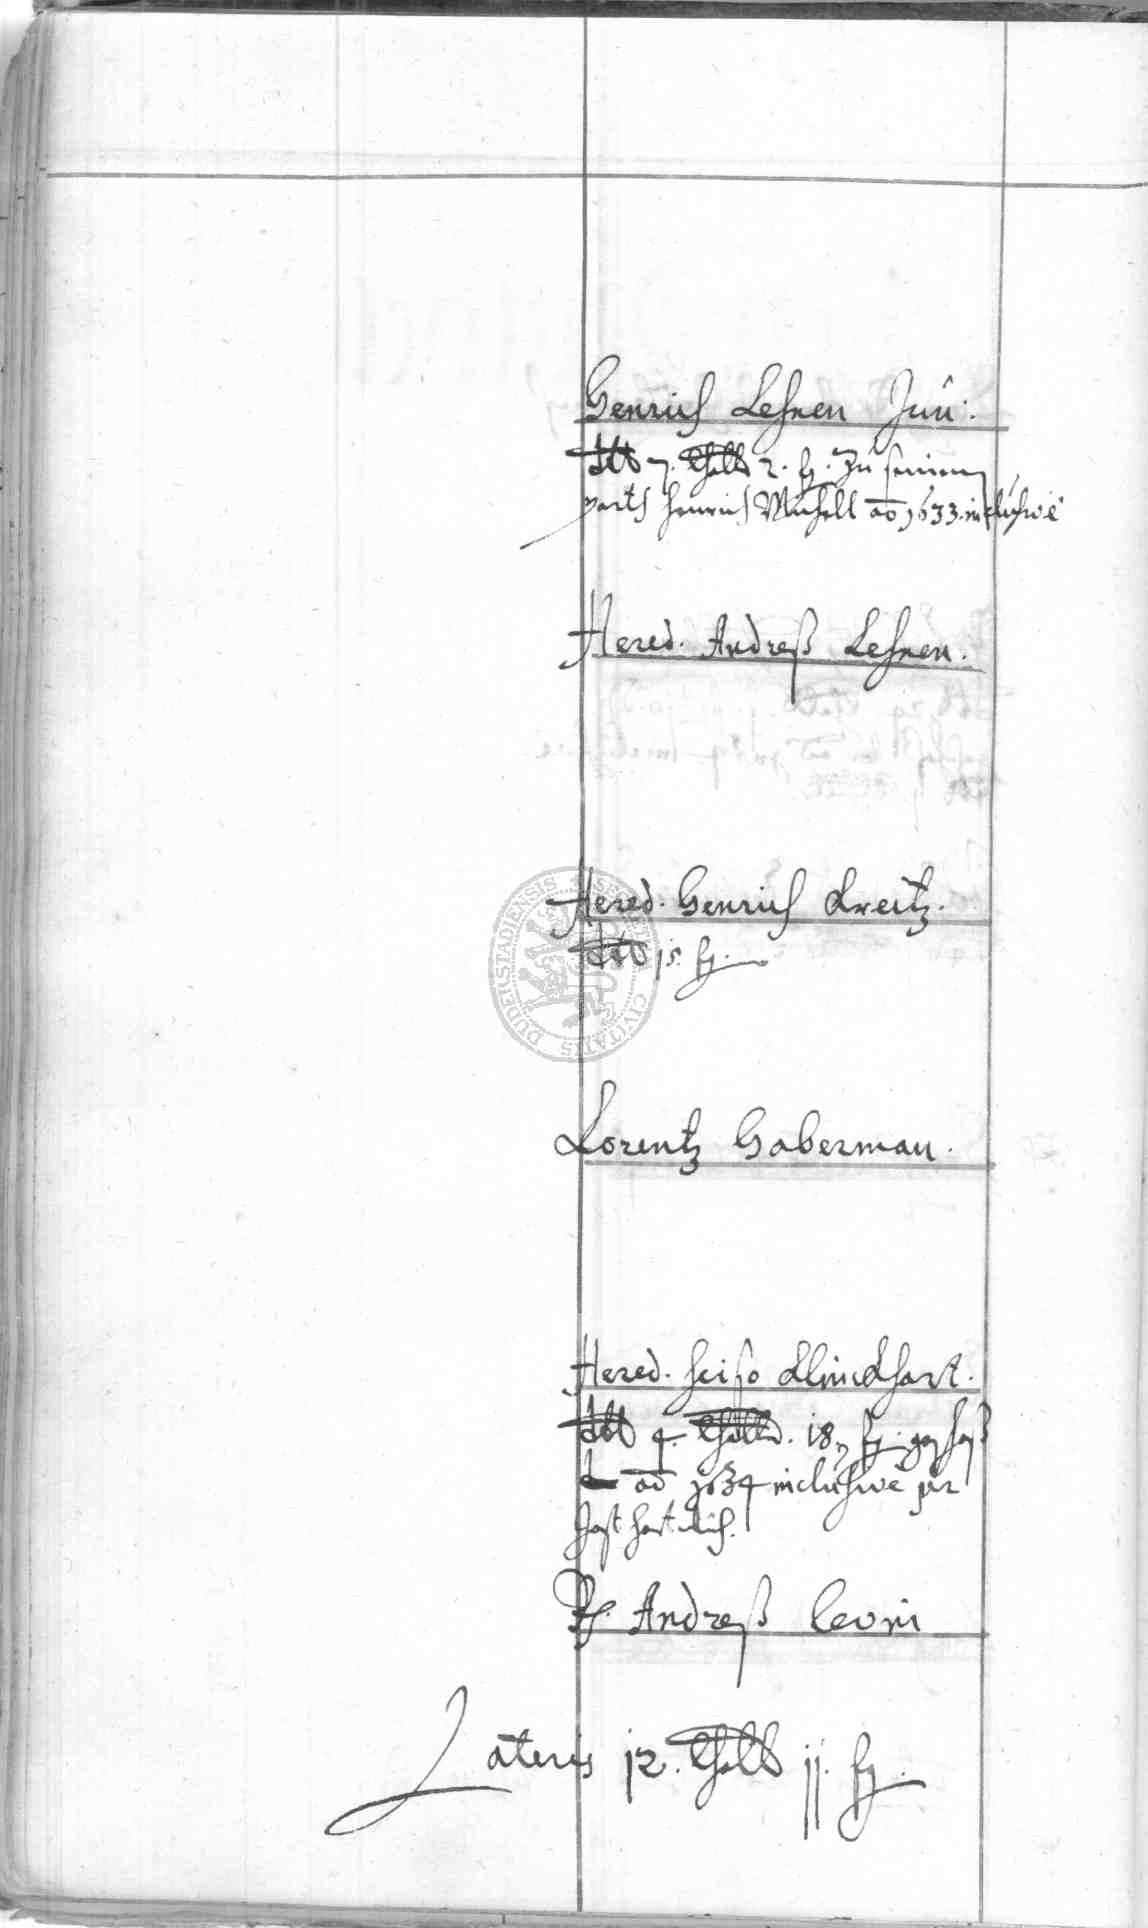 Henrich Lehnen Jun:
dt 7. thall 2. ß. zu seinem
parth Henrich Michell ao 1633. inclusive
Hered. Andreß Lehnen.
Hered. Henrich Kreitz.
dt 15. ß.
Lorentz Haberman.
Hered. heiso Klinckhart.
dt 4. thall. 18 ß.
ao 1634 inclusive
H. Andreß Levin
Lateris 12. thall 11. ß.
SECRET CIVITATIS DUDERSTADIENSIS